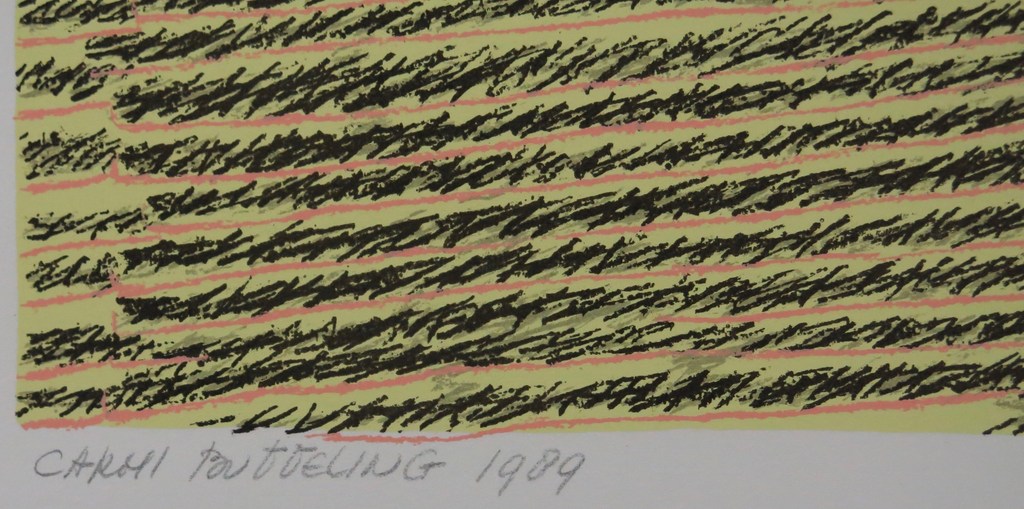 CARMI BUTTELING 1989